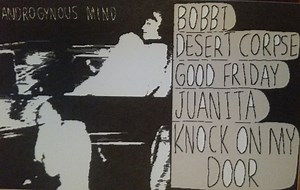 ANDROGYNOUS MIND
BOBBI
DESERT CORPSE
GOOD FRIDAY
JUANITA
KNOCK ON MY
DOOR